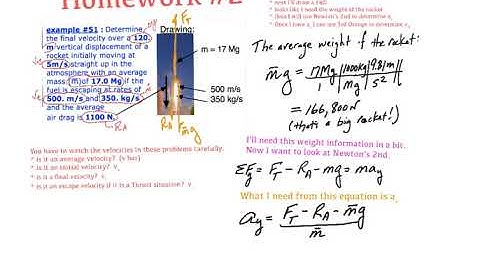 Homework #2
example #51 : Determine
the final velocity over a 120.
m vertical displacement of a
rocket initially moving at
5m/s straight up in the
atmosphere with an average
mass (m) of 17.0 Mg if the
fuel is escaping at rates of
500. m/s and 350. kg/s
and the average
air drag is 1100 N.
RA
Drawing:
FT
m = 17 Mg
500 m/s
350 kg/s
RA
Fm̄g
You have to watch the velocities in these problems carefully.
* is it an average velocity? (v bar)
* is it an initial velocity? v
* is it a final velocity? v
* is it an escape velocity if it is a Thrust situation? v
* looks like I need the weight of the rocket
The average weight of the rocket:
m̄g = 17Mg | 1000kg | 9.81m
1 | 1Mg | s²
= 166,800N
(that's a big rocket!)
I'll need this weight information in a bit.
Now I want to look at Newton's 2nd.
ΣFy = FT - RA - mg = may
What I need from this equation is a
ay = FT - RA - m̄g
m̄